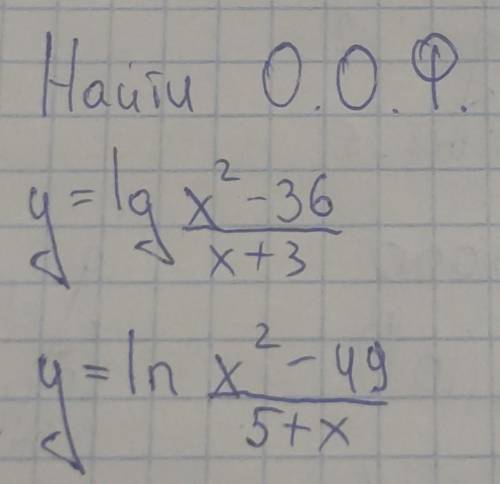 Найти О.О.Ф.
y = lg \frac{x^2 - 36}{x + 3}
y = ln \frac{x^2 - 49}{5 + x}